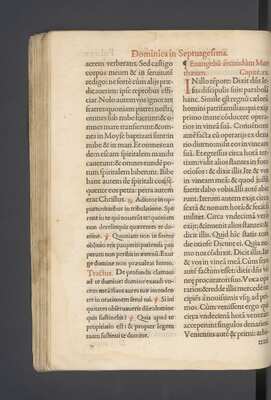 Dominica in Septuagesima.
aerem verberans. Sed castigo
corpus meum & in seruitutē
redigo: ne fortè cùm alijs præ-
dicauerim: ipse reprobus effi-
ciar. Nolo autem vos ignorare
fratres: quoniam patres nostri,
omnes sub nube fuerunt: &
omnes mare transierunt: & om-
nes in Moyse baptizati sunt: in
nube & in mari. Et omnes ean-
dem escam spiritalem mandu-
cauerunt: & omnes eundē po-
tum spiritalem biberunt. Bibe-
bant autem de spiritali consē-
quente eos petra: petra autem
erat Christus. Adiutor in op-
portunitatibus in tribulatione. Spe-
rent in te qui nouerunt te: quoniam
non derelinquis quærentes te
domine. Quoniam non in finem
obliuio erit pauperis: patientia pau-
perum non peribit in æternum. Exur-
ge domine non præualeat homo.
Tractus. De profundis clamaui
ad te domine: domine exaudi vo-
cem meā. Fiant aures tuæ intenden-
tes in orationem serui tui. Si ini-
quitates obseruaueris domine: domine
quis sustinebit? Quia apud te
propitiatio est: & propter legem
tuam sustinui te domine.
Euangelij secundùm Mat-
thæum. Caput. xx.
IN illo tēpore: Dixit
discipulis suis parabolā
hanc. Simile est regnū cælorū
homini patrifamiliâs: qui exijt
primo mane conducere opera-
rios in vineā suā. Conuentione
autē facta cū operarijs ex de-
nario diurno: misit eos in vineā
suā. Et egressus circa horā ter-
tiam: vidit alios stantes in foro
ociosos: & dixit illis. Ite & vos
in vineam meā: & quod iustū
fuerit dabo vobis. Illi autē abie-
runt. Iterum autem exijt circa
sextā & nonam horā: & fecit si-
militer. Circa vndecimā verò
exijt: & inuenit alios stantes: &
dixit illis. Quid hîc statis tota
die ociosi? Dicunt ei. Quia ne-
mo nos cōduxit. Dicit illis. Ite
& vos in vineā meā. Cùm serò
autē factum esset: dicit dn̄s vi-
neę procuratori suo. Voca ope-
rarios & redde illis mercedē: in-
cipiēs à nouissimis vsq; ad pri-
mos. Cùm venissent ergo qui
circa vndecimā horā venerant:
acceperunt singulos denarios.
Venientes autē & primi: arbi-